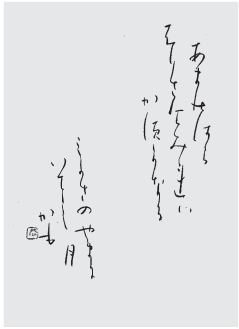 あまのはら
ふりさけみれハ
か須かなる
みかさのやまに
いてし月
かも